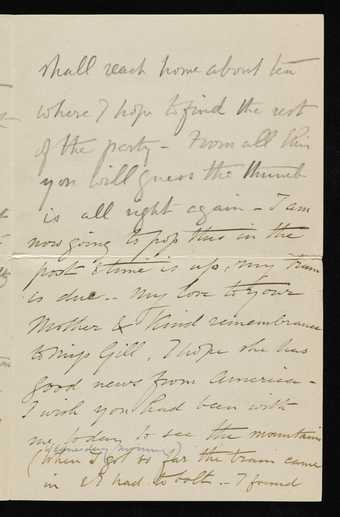 shall reach home about ten
where I hope to find the rest
of the party - From all this
you will guess the thumb
is all right again - I am
now going to pop this in the
post & time is up, my train
is due -. My love to your
Mother & kind remembrance
to Miss Gill, I hope she has
good news from America -
I wish you had been with
me today to see the mountains
Wednesday morning
(When I got so far the train came
in & I had to bolt - I found